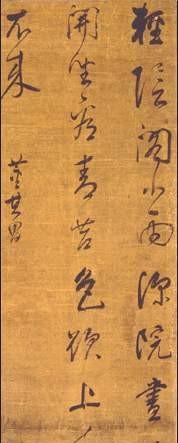 輕陰閣小雨深院晝
開坐看青苔色欲上人
衣来
董其昌